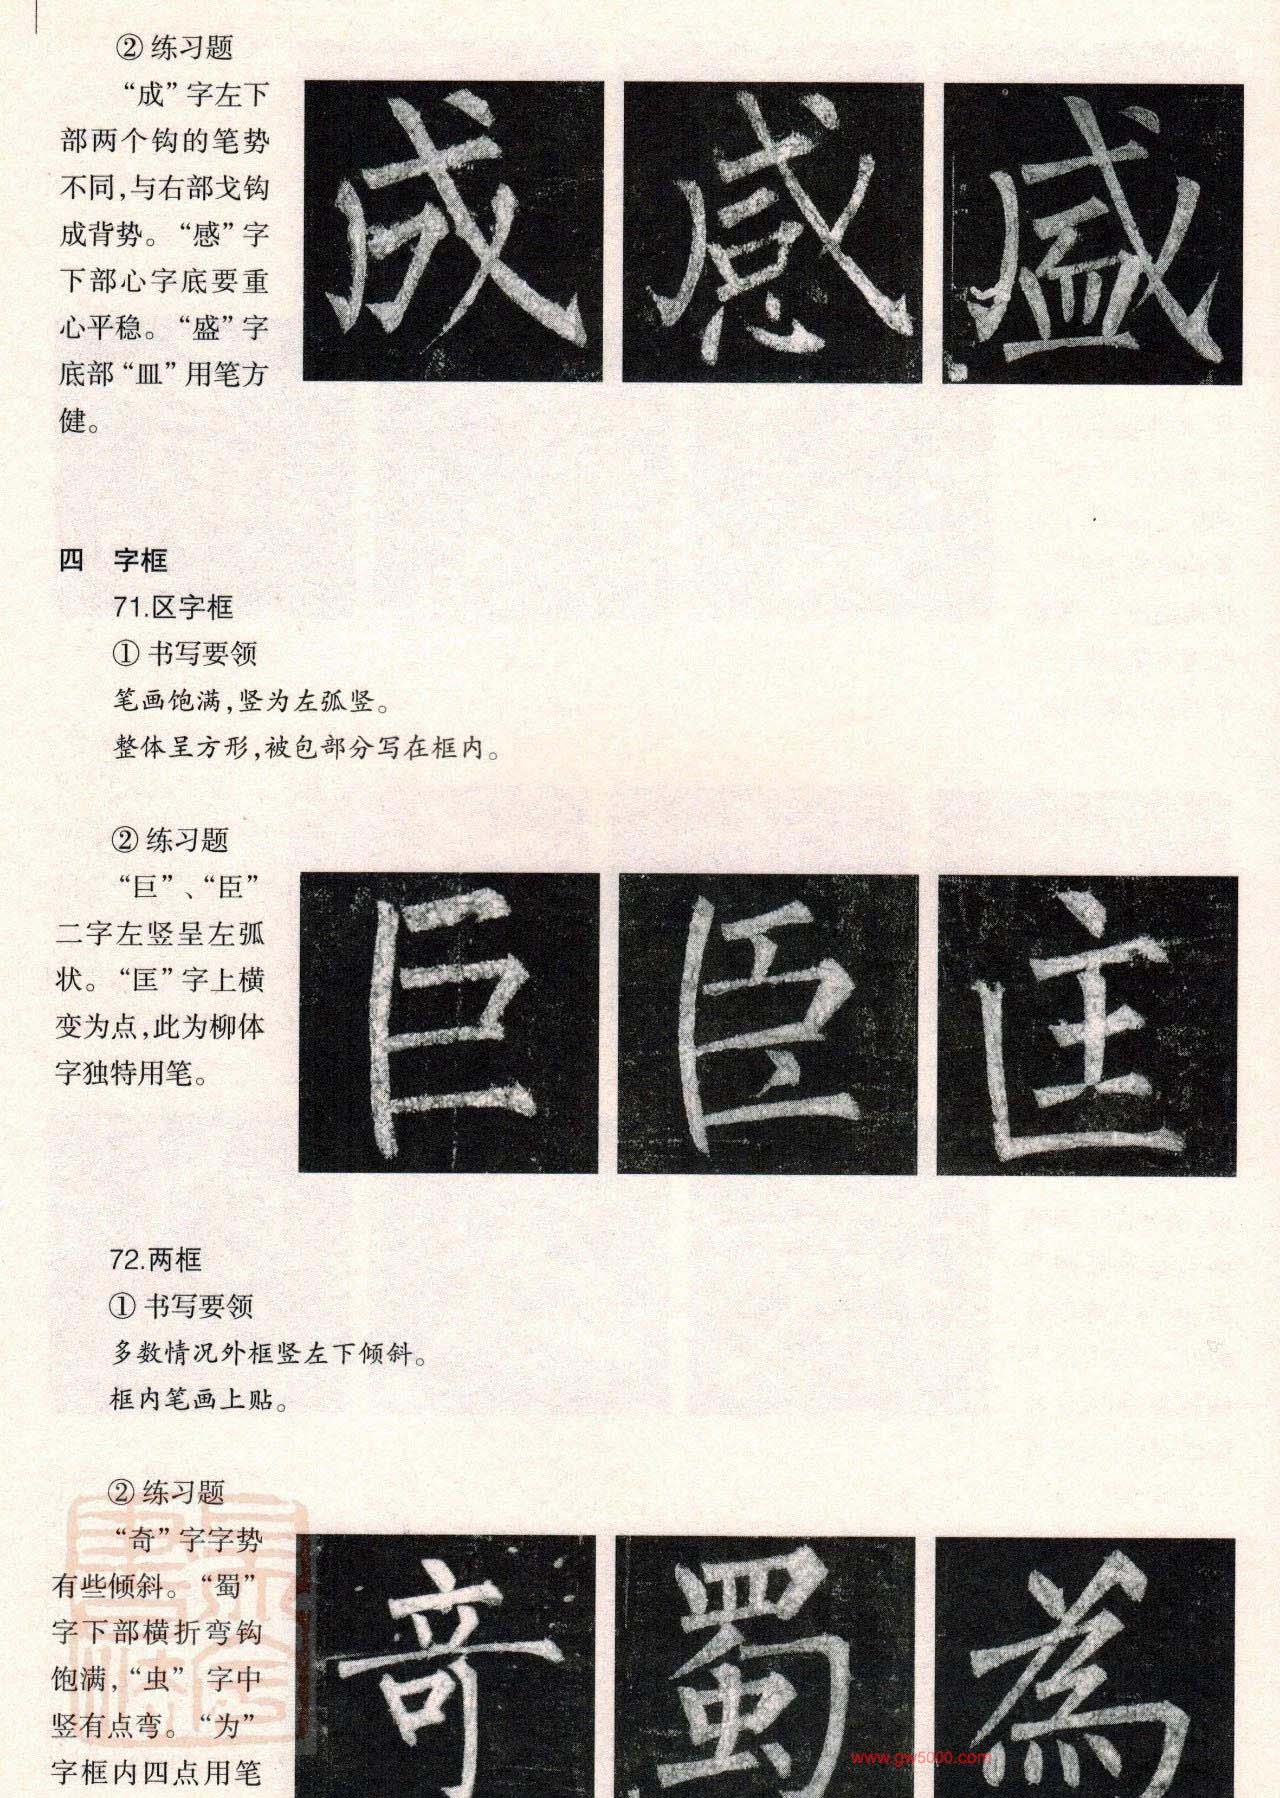 ② 练习题
“成”字左下
部两个钩的笔势
不同,与右部戈钩
成背势。“感”字
下部心字底要重
心平稳。“盛”字
底部“皿”用笔方
健。
成
感
盛
四 字框
71.区字框
① 书写要领
笔画饱满,竖为左弧竖。
整体呈方形,被包部分写在框内。
② 练习题
“巨”、“臣”
二字左竖呈左弧
状。“匡”字上横
变为点,此为柳体
字独特用笔。
巨
臣
匡
72.两框
① 书写要领
多数情况外框竖左下倾斜。
框内笔画上贴。
② 练习题
“奇”字字势
有些倾斜。“蜀”
字下部横折弯钩
饱满,“虫”字中
竖有点弯。“为”
字框内四点用笔
奇
蜀
為
www.gw5000.com